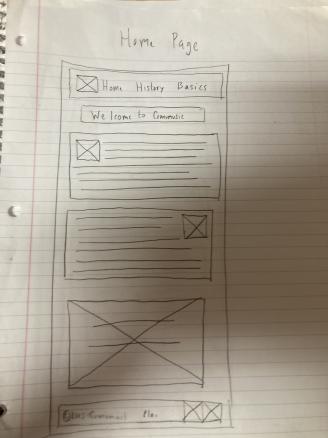 Home Page
Home History Basics
Welcome to Commusic